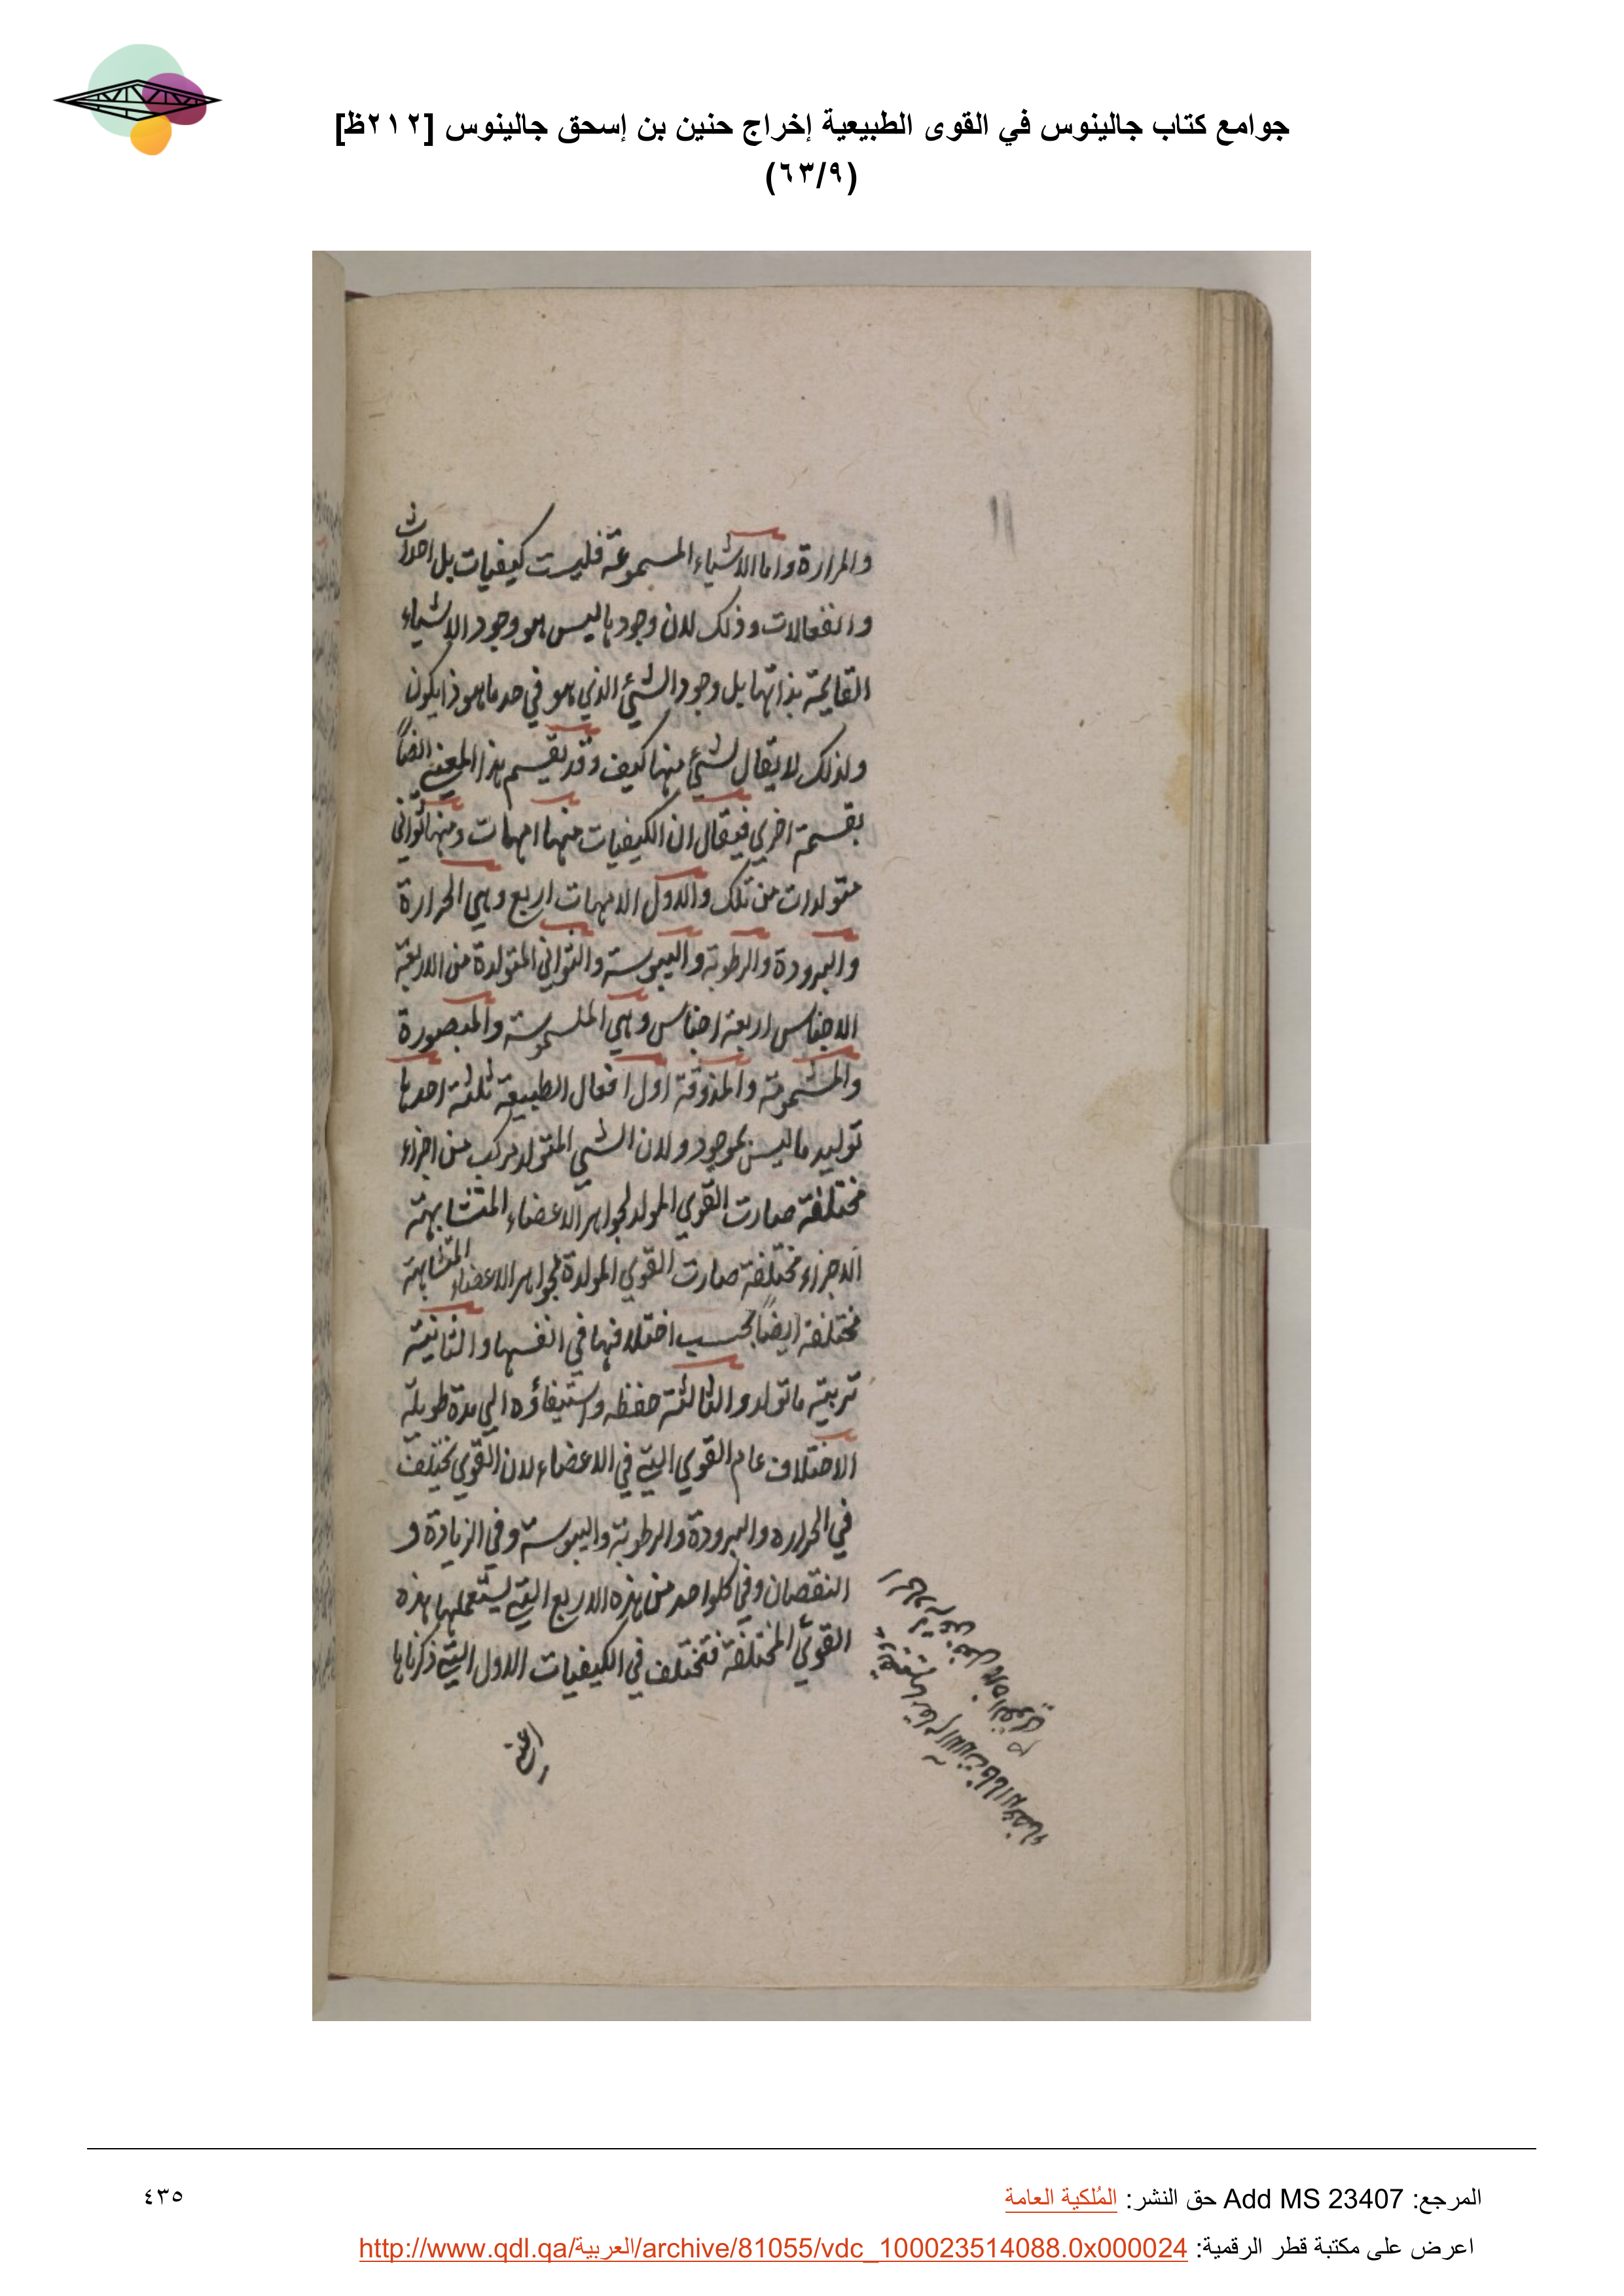 جوامع كتاب جالينوس في القوى الطبيعية إخراج حنين بن إسحق جالينوس [٢١٢ظ]
(٦٣/٩)
والمرارة واما الاشياء المسموعة فليست كيفيات بل احداث
وانفعالات وذلك لان وجودها ليس هو وجود الاشياء
القايمة بذاتها بل وجود الشيء الذي هو في حد ما هو ذا يكون
ولذلك لا يقال لشيء منها كيف وقد يقسم هذا المعني ايضاً
بقسمة اخري فيقال ان الكيفيات منها امهات ومنها ثواني
متولدات من تلك والاول الامهات اربع وهي الحرارة
والبرودة والرطوبة واليبوسة والثواني المتولدة من الاربعة
الاجناس اربعة اجناس وهي الملموسة والمبصورة
والمشمومة والمذوقة اول افعال الطبيعة ثلثة احدها
توليد ما ليس بموجود ولان الشي المتولد مركب من اجزاء
مختلفة صارت القوي المولد لجواهر الاعضاء المتشابهة
الاجزاء مختلفة صارت القوي المولدة لجواهر الاعضاء المتشابهة
مختلفة ايضاً بحسب اختلافها في انفسها والثانية
تربية ما تولد والثالثة حفظه واستيفاؤه الي مدة طويلة
الاختلاف عام القوي التي في الاعضاء لان القوي تختلف
في الحراره والبرودة والرطوبة واليبوسة وفي الزيادة و
النقصان وفي كلواحد من هذه الاربع التي يستعملها هذه
القوي المختلفة فتختلف في الكيفيات الاول التي ذكرناها
المرجع: Add MS 23407 حق النشر: المُلكية العامة
٤٣٥
اعرض على مكتبة قطر الرقمية: http://www.qdl.qa/العربية/archive/81055/vdc_100023514088.0x000024